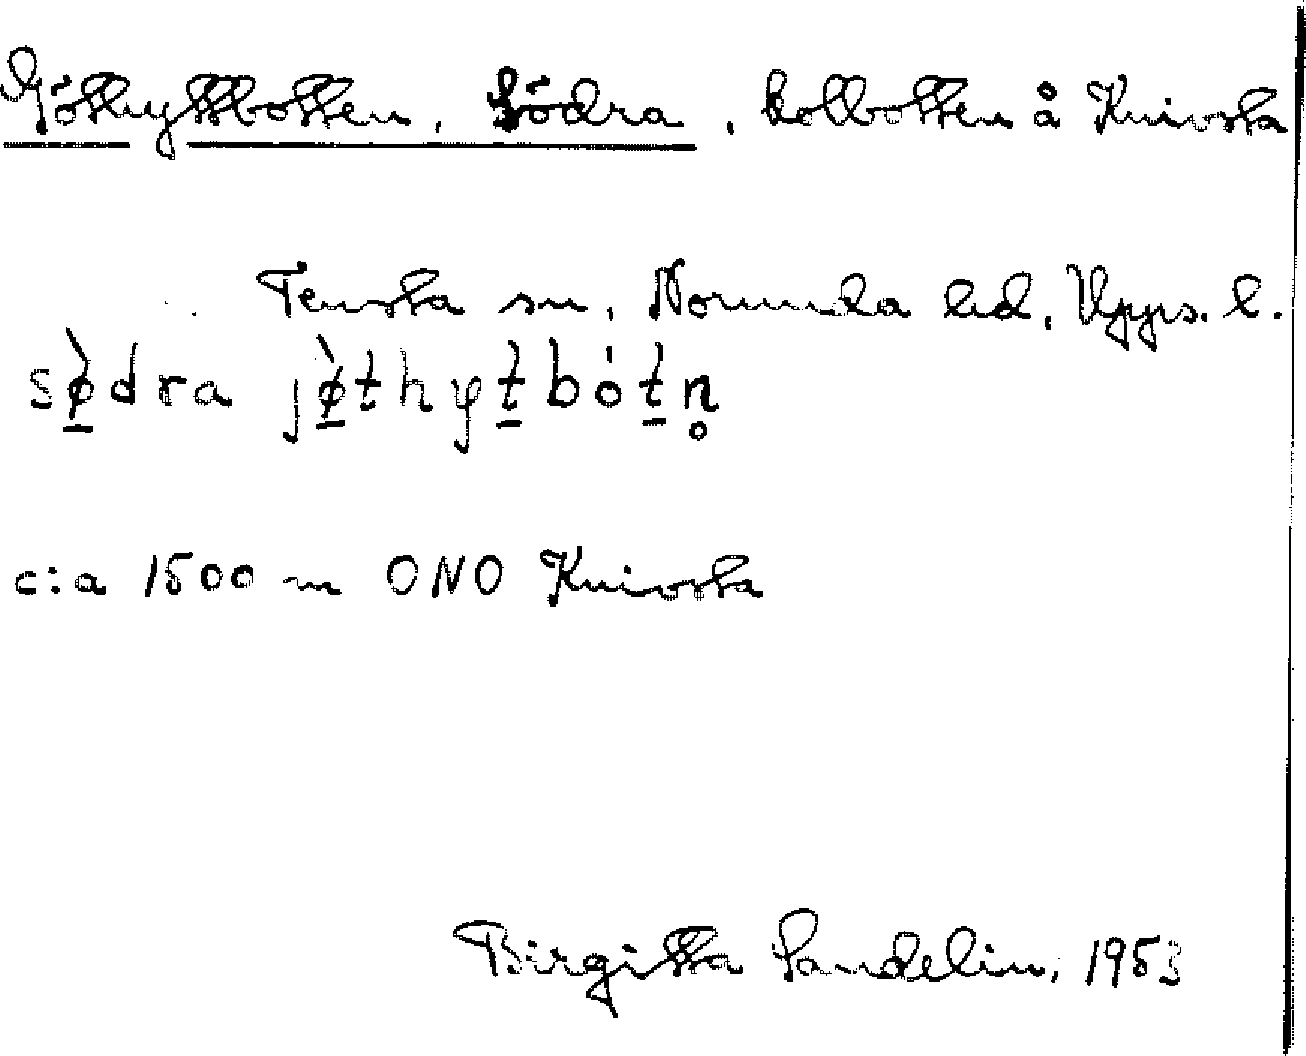 Göthyttbotten, Södra, kolbotten å Knivsta
Tensta sn, Norunda hd, Upps. l.
sø̱̀dra jø̱̀thyṯbóṯn̥
c:a 1500 m ONO Knivsta
Birgitta Sandelin, 1953